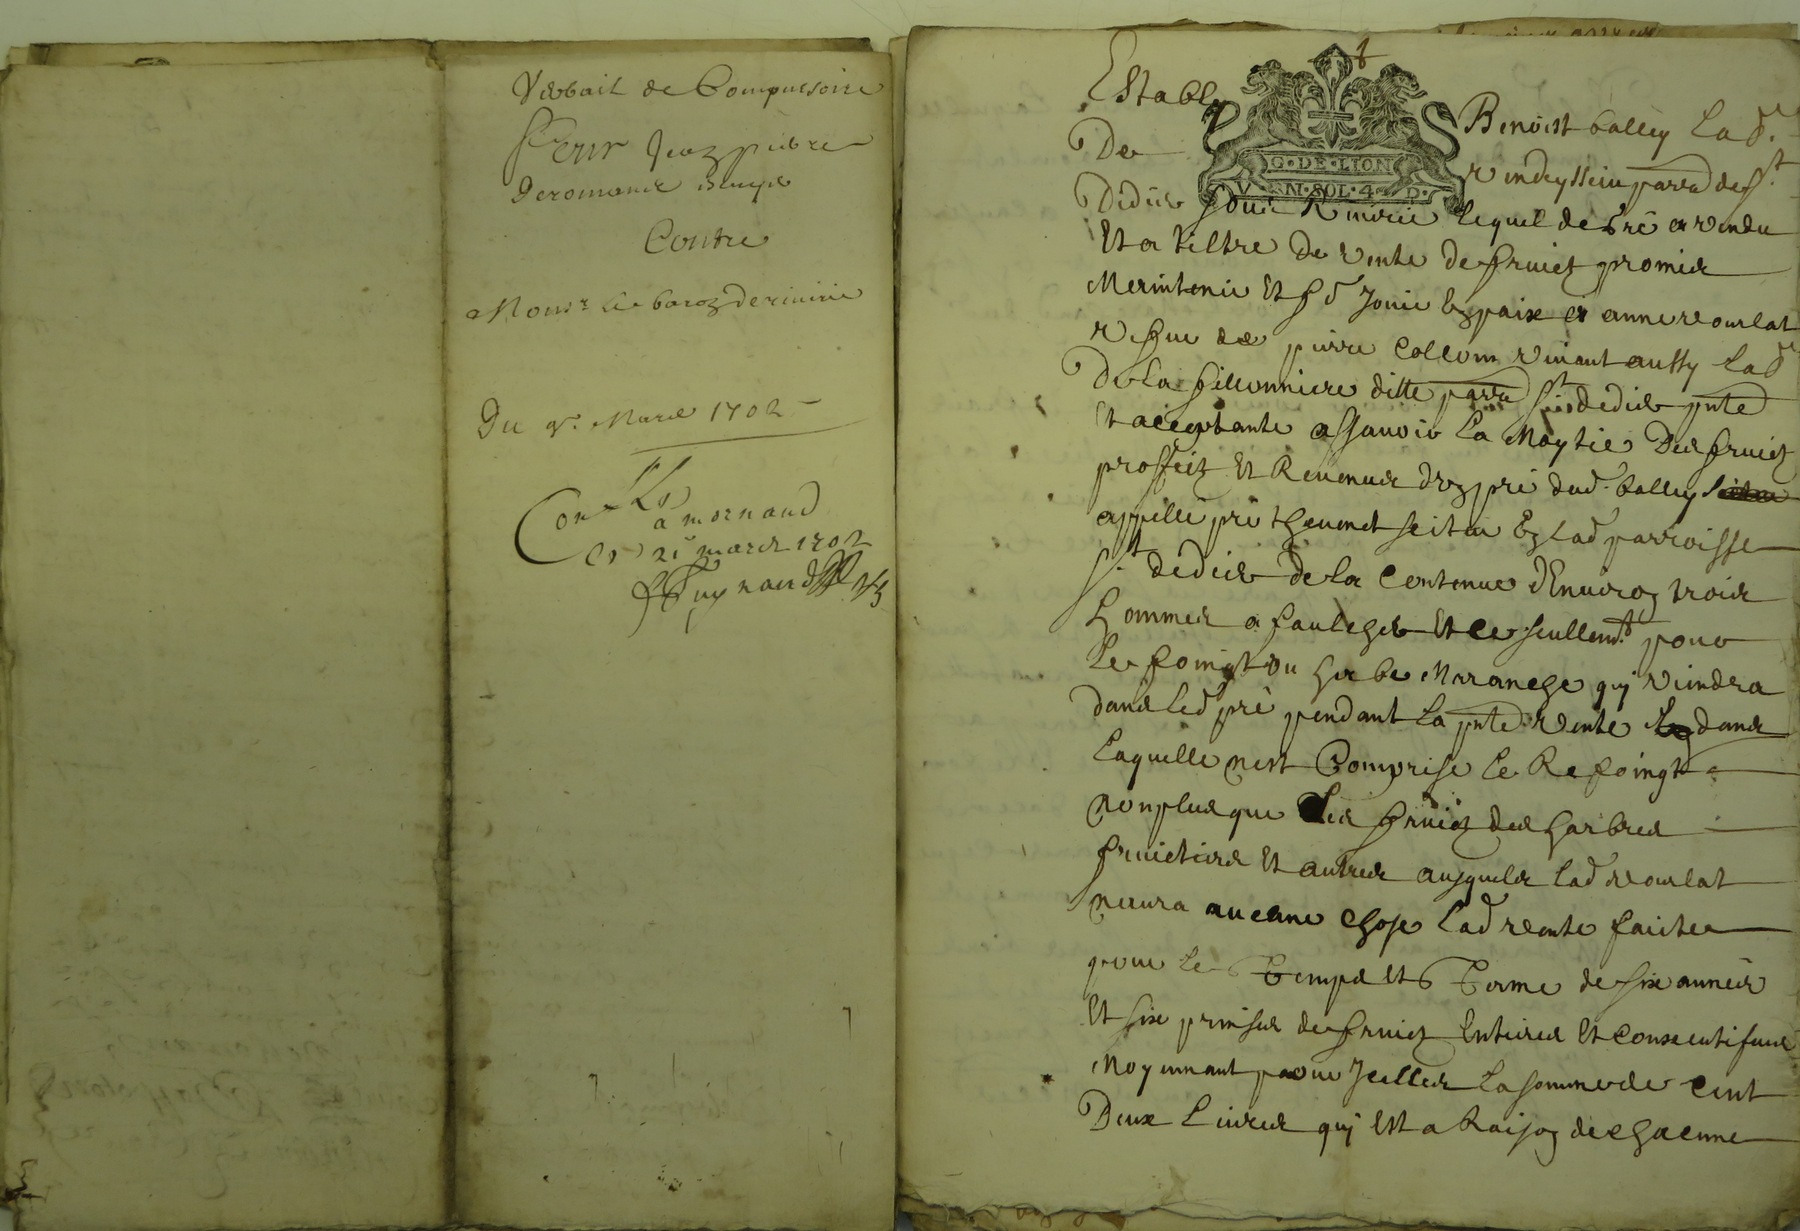 Verbail de Compulsoire
Sieur Jean pierre
Deromans escuyer
Contre
Monsr le baron de riuirie
Du 9e. Mars 1702
Con lle
a mornand
le 21e mars 1702
G. DE. LION
V. M. SOL. 4 D.
Estably Benoist balley Lab.r
De vindeyssieu parr.e de St.
Didier soub Riuirie lequel de gré a vendu
Et a tiltre de vente de fruictz promis
Meintenir Et f.e Jouir En paix a anne voullat
vefue de pierre Colleom viuant aussy Lab.r
De la fillonniere ditte parr.e St dedier pnte
Et acceptante assauoir La Moytié Des fruictz
proffictz Et Reuenus d'un pré dud. balley
appellé pré theuenet scitué En lad parroisse
St. dedier de la Contenue d'Enuiron trois
hommes a faulcher Et ce seullemt. pour
Le foingt ou herbe Maranche quj viendra
dans led pré pendant la pnte vente dans
Laquelle n'est Comprise le Refoingt
non plus que Les fruictz des harbres
fruictiers Et autres ausquels lad voullat
n'aura aucune chose Lad vente faicte
pour le Temps et Terme de six années
Et six prinses de fruictz Entieres Et consecutifues
Moyennant pour Jcelles La somme de Cent
Deux Liures quj Est a Raison de chacune